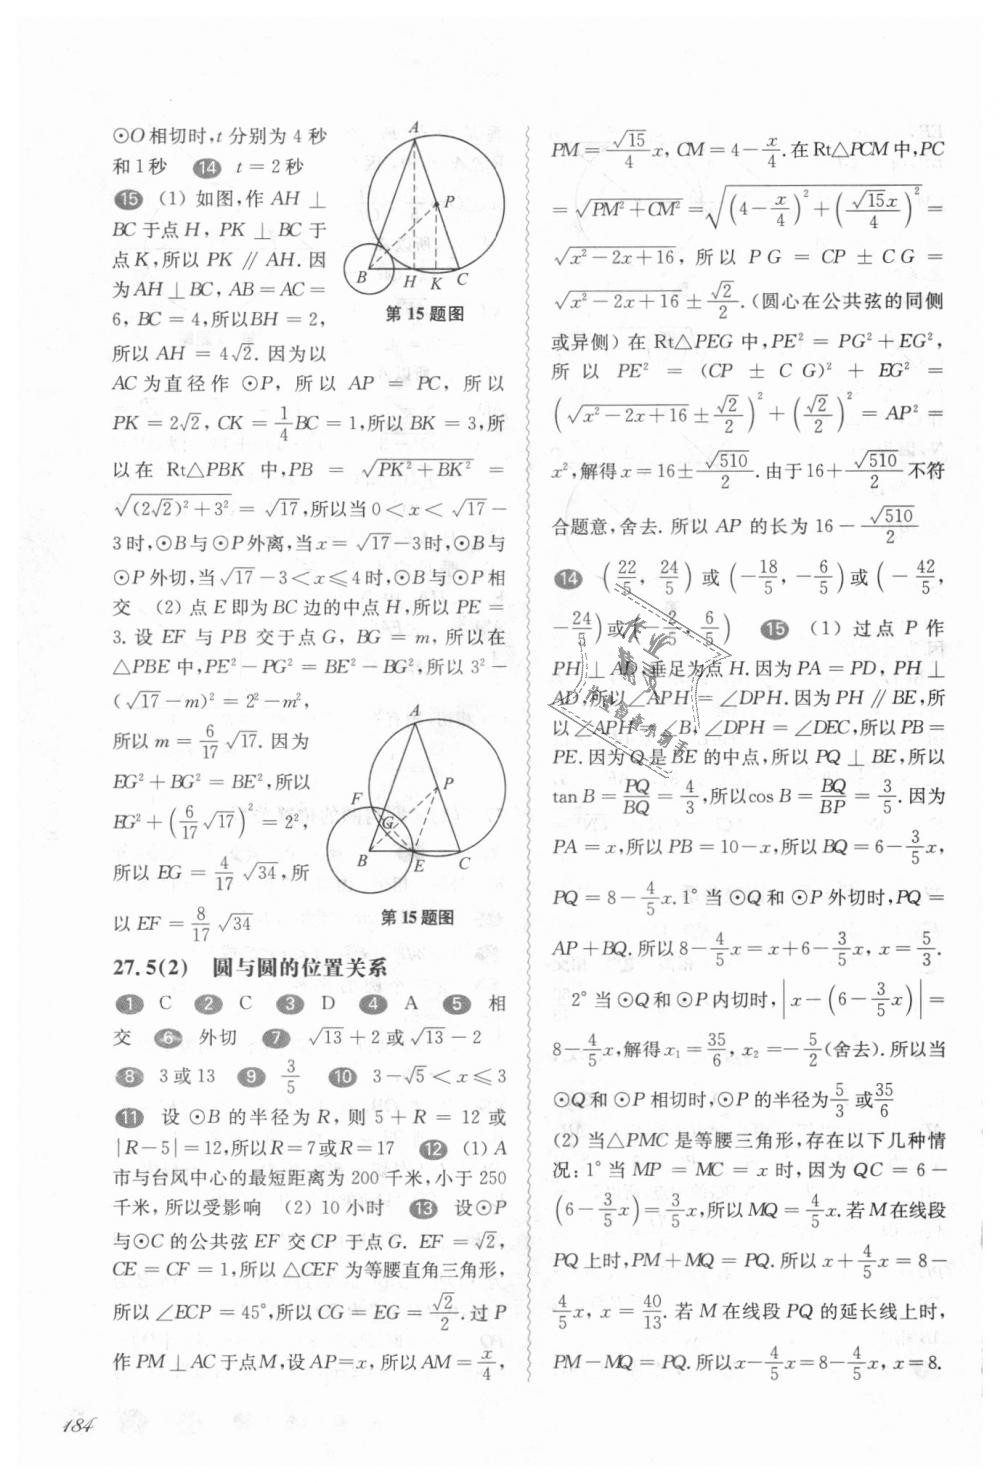 ⊙O相切时,t分别为4秒
和1秒 14 t=2秒
15 (1) 如图,作 AH ⊥
BC于点H, PK ⊥ BC于
点K,所以 PK ∥ AH. 因
为AH⊥BC, AB=AC=
6, BC=4,所以BH=2,
所以 AH = 4√2. 因为以
AC为直径作 ⊙P, 所以 AP = PC, 所以
PK=2√2, CK=1/4 BC=1,所以BK=3,所
以在 Rt△PBK 中,PB = √(PK²+BK²) =
√((2√2)²+3²) = √17,所以当0<x<√17-
3时,⊙B与⊙P外离,当x=√17-3时,⊙B与
⊙P外切,当√17-3<x≤4时,⊙B与⊙P相
交 (2) 点E即为BC边的中点H,所以PE=
3. 设 EF 与 PB 交于点G, BG=m, 所以在
△PBE中,PE²-PG²=BE²-BG²,所以3²-
(√17-m)²=2²-m²,
所以 m=6/17 √17. 因为
EG²+BG²=BE²,所以
EG²+(6/17 √17)²=2²,
所以 EG = 4/17 √34,所
以 EF = 8/17 √34
A
P
B
H
K
C
第15题图
A
F
P
G
B
E
C
第15题图
27.5(2) 圆与圆的位置关系
1 C 2 C 3 D 4 A 5 相
交 6 外切 7 √13+2或√13-2
8 3或13 9 3/5 10 3-√5<x≤3
11 设 ⊙B 的半径为R, 则 5+R=12 或
|R-5|=12,所以R=7或R=17 12 (1) A
市与台风中心的最短距离为200千米,小于250
千米,所以受影响 (2) 10小时 13 设⊙P
与⊙C的公共弦EF交CP于点G. EF=√2,
CE=CF=1,所以△CEF为等腰直角三角形,
所以∠ECP=45°,所以CG=EG=√2/2.过P
作PM⊥AC于点M,设AP=x,所以AM=x/4,
PM=√15/4 x, CM=4-x/4.在Rt△PCM中,PC
=√(PM²+CM²)=√((4-x/4)²+(√15x/4)²)=
√(x²-2x+16), 所以 PG = CP ± CG =
√(x²-2x+16) ± √2/2.(圆心在公共弦的同侧
或异侧) 在 Rt△PEG 中,PE²=PG²+EG²,
所以 PE² = (CP ± CG)² + EG² =
(√(x²-2x+16) ± √2/2)²+(√2/2)²=AP²=
x²,解得x=16±√510/2.由于16+√510/2 不符
合题意,舍去. 所以 AP 的长为 16-√510/2
14 (22/5, 24/5) 或 (-18/5, -6/5) 或 (-42/5,
-24/5) 或 (-2/5, 6/5) 15 (1) 过点 P 作
PH⊥AD,垂足为点H.因为PA=PD, PH⊥
AD,所以∠APH=∠DPH.因为PH∥BE,所
以∠APH=∠B, ∠DPH=∠DEC,所以PB=
PE.因为Q是BE的中点,所以PQ⊥BE,所以
tan B=PQ/BQ=4/3,所以cos B=BQ/BP=3/5.因为
PA=x,所以PB=10-x,所以BQ=6-3/5 x,
PQ=8-4/5 x.1°当⊙Q和⊙P外切时,PQ=
AP+BQ.所以8-4/5 x=x+6-3/5 x, x=5/3.
2°当⊙Q和⊙P内切时,|x-(6-3/5 x)|=
8-4/5 x,解得x₁=35/6, x₂=-5/2(舍去).所以当
⊙Q和⊙P相切时,⊙P的半径为5/3或35/6
(2) 当△PMC是等腰三角形,存在以下几种情
况:1°当 MP=MC=x 时, 因为 QC=6-
(6-3/5 x)=3/5 x,所以MQ=4/5 x.若M在线段
PQ上时,PM+MQ=PQ.所以x+4/5 x=8-
4/5 x, x=40/13. 若 M 在线段 PQ 的延长线上时,
PM-MQ=PQ.所以x-4/5 x=8-4/5 x, x=8.
作业
精灵
作业检查小助手
184